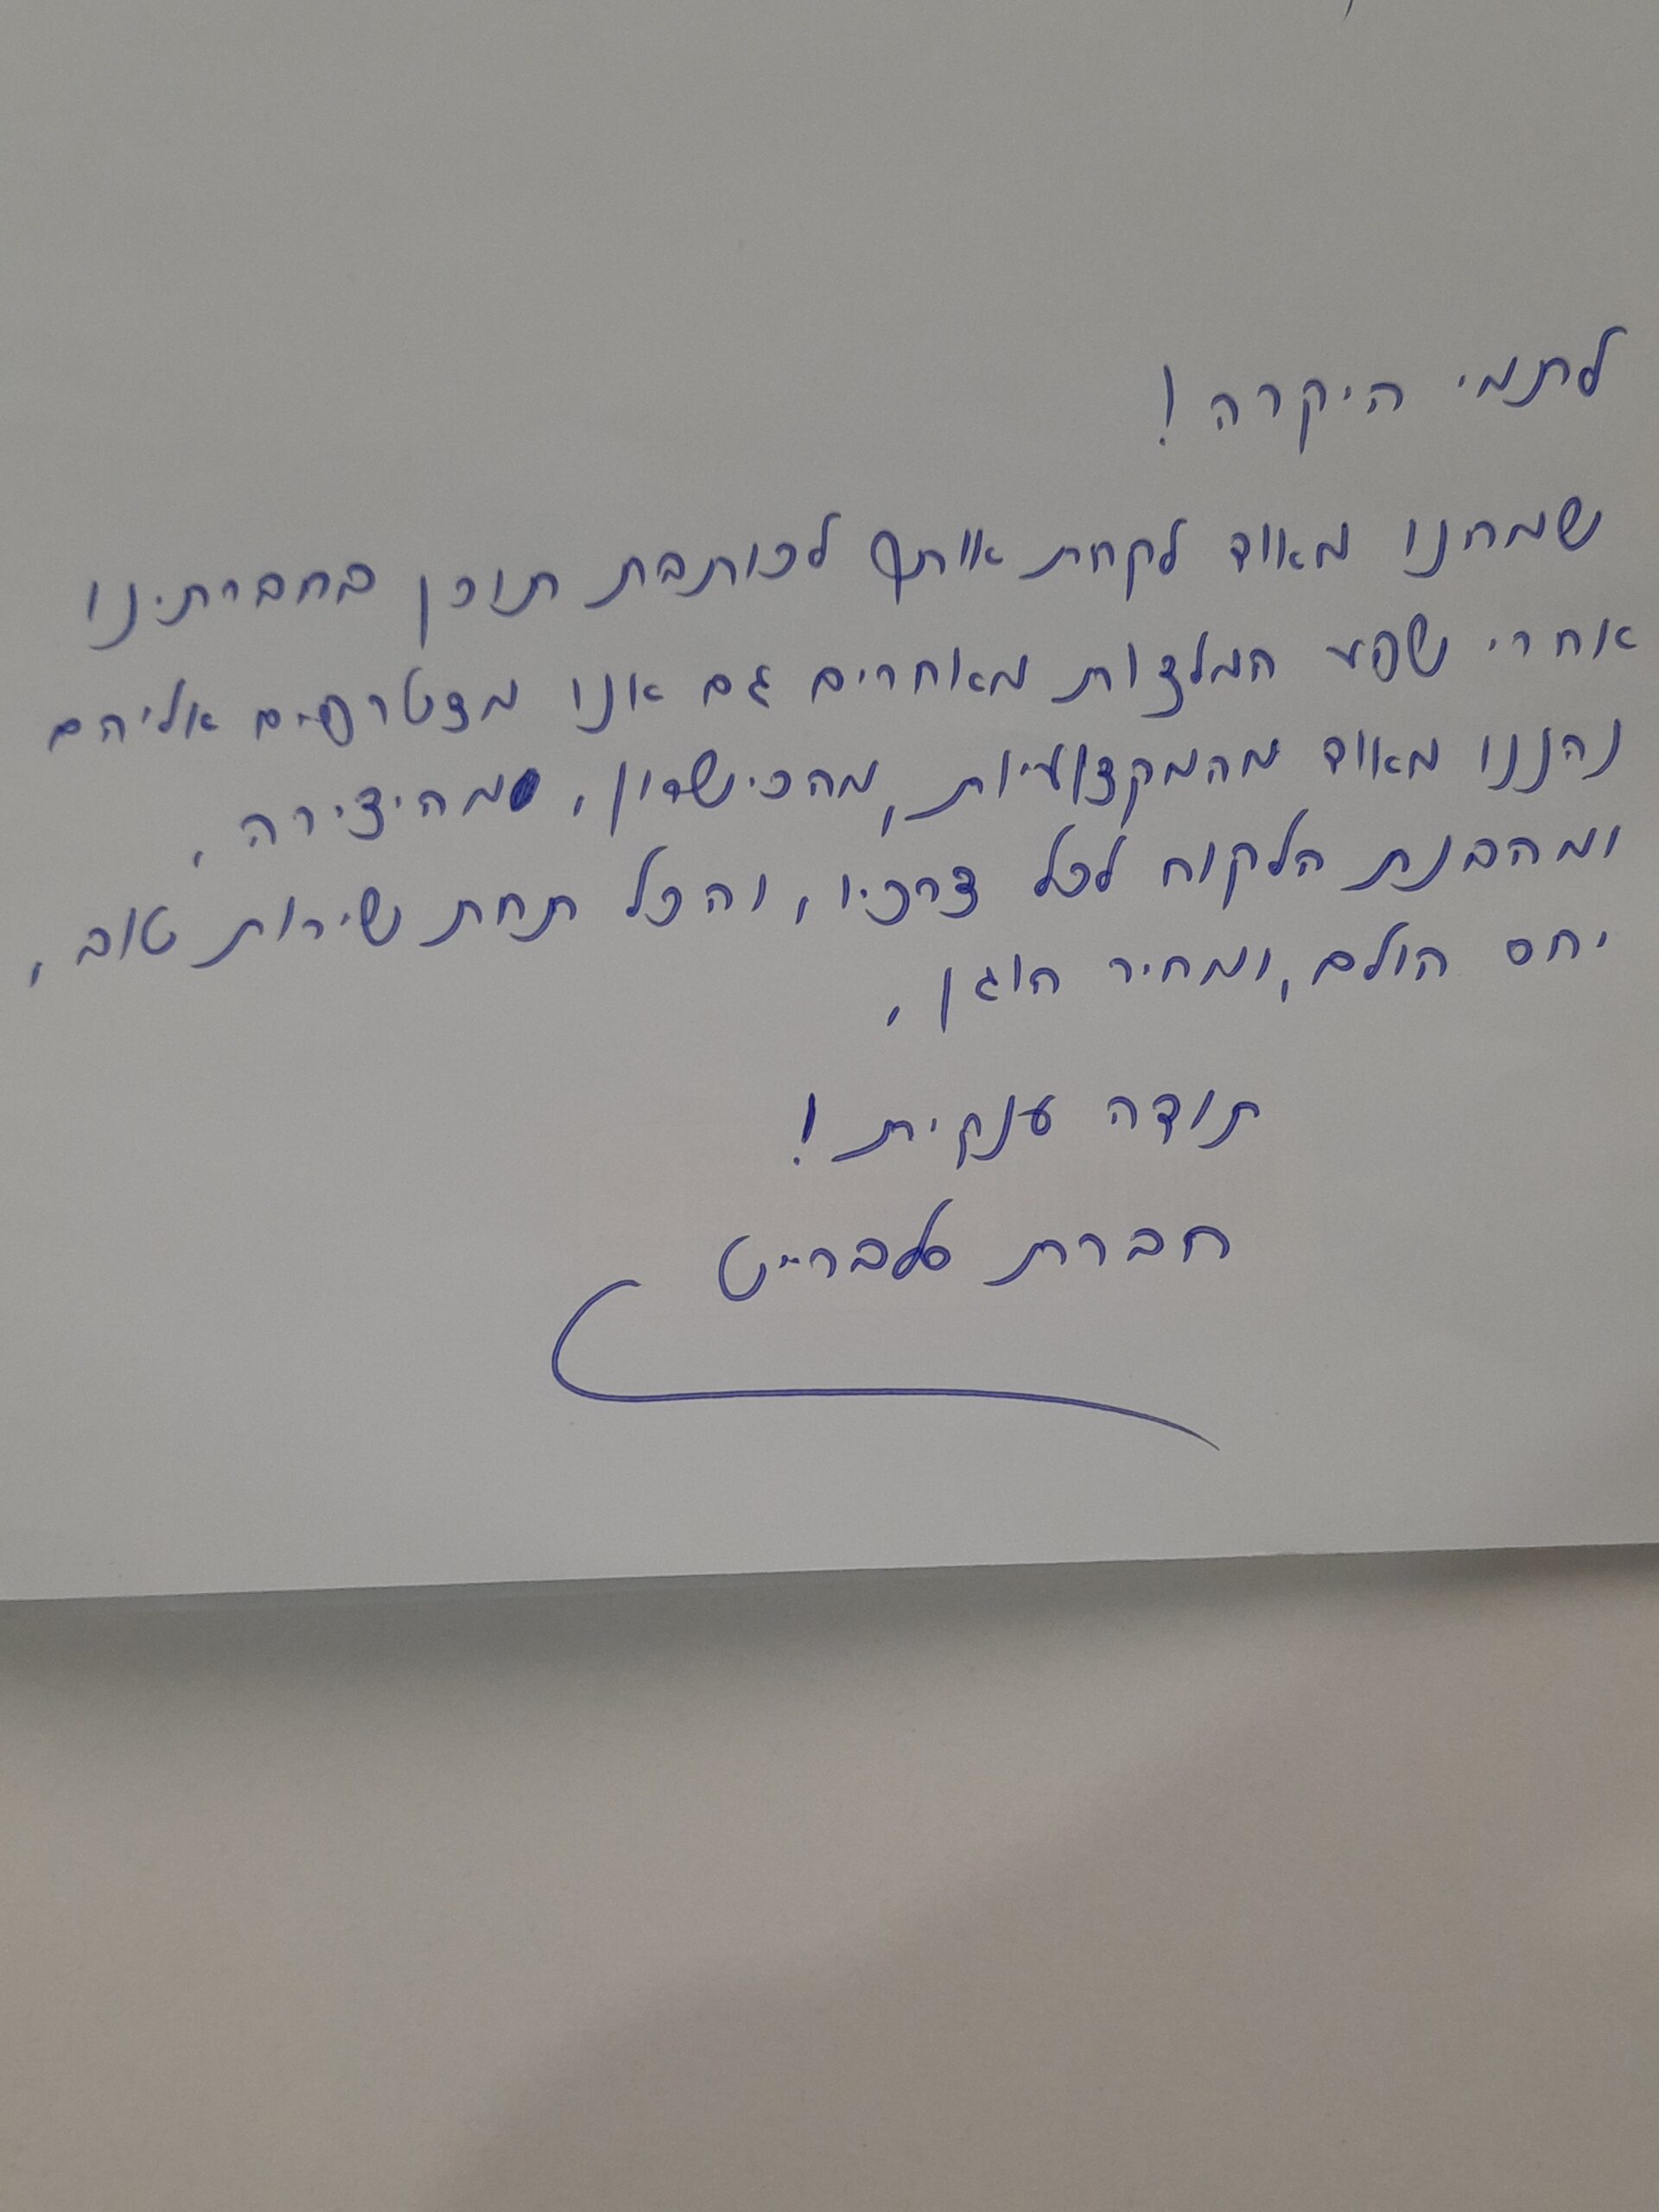 לתמי היקרה!
שמחנו מאוד לקחת אותך לכותבת תוכן בחברתינו
אחרי שפע המלצות מאוחרים גם אנו מצטרפים אליהם
נהננו מאוד מהמקצועיות, מהכישרון, מהיצירה,
ומהבנת הלקוח לכל צרכיו, והכל תחת שירות טוב,
יחס הולם, ומחיר הוגן,
תודה ענקית!
חברת סלברייט